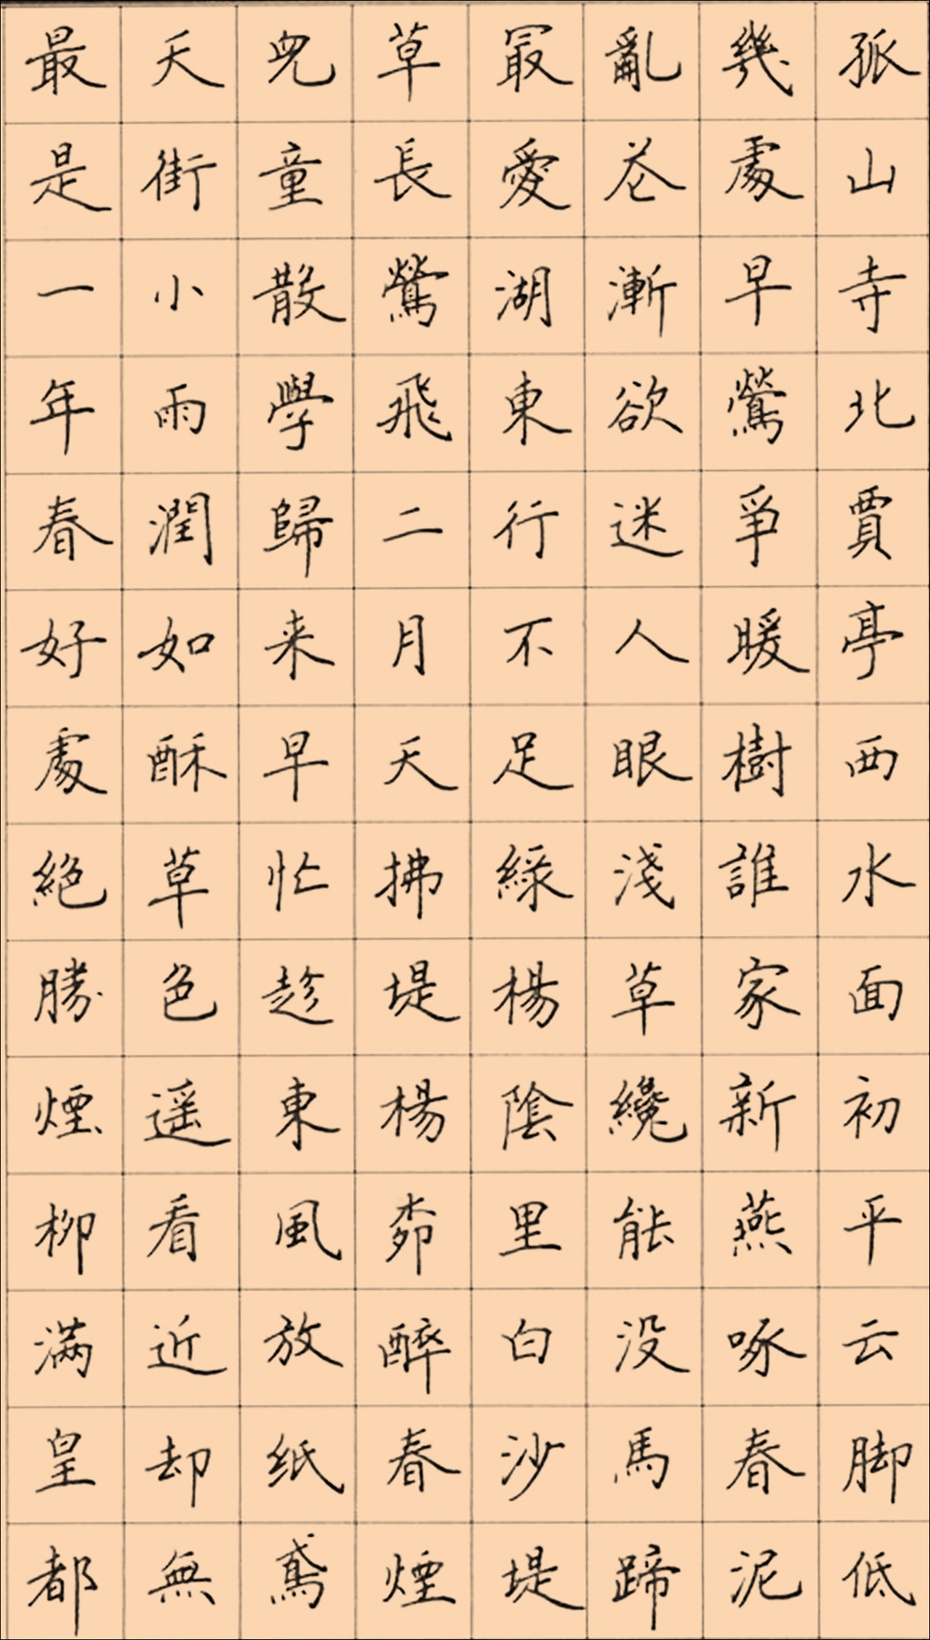 孤山寺北賈亭西水面初平云脚低
幾處早鶯爭暖樹誰家新燕啄春泥
亂花漸欲迷人眼淺草纔能没馬蹄
最愛湖東行不足綠楊陰里白沙堤
草長鶯飛二月天拂堤楊柳醉春煙
兒童散學歸来早忙趁東風放纸鳶
天街小雨潤如酥草色遥看近却無
最是一年春好處絕勝煙柳滿皇都